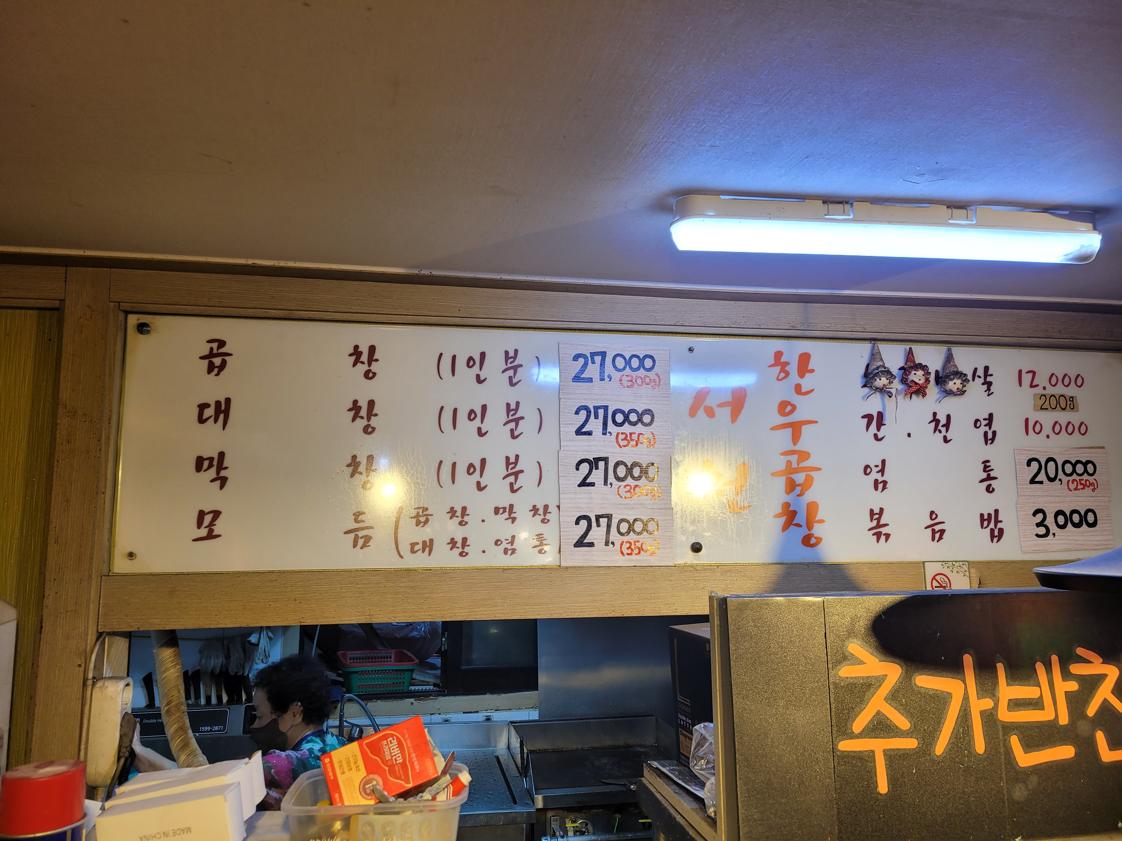 곱창 (1인분) 27,000 (300g)
대창 (1인분) 27,000 (350g)
막창 (1인분) 27,000 (300g)
모듬 (곱창.막창 대창.염통) 27,000 (350g)
한우곱창
살 12,000
200g
간.천엽 10,000
염통 20,000 (250g)
볶음밥 3,000
추가반찬
MADE IN CHINA
1599-2871